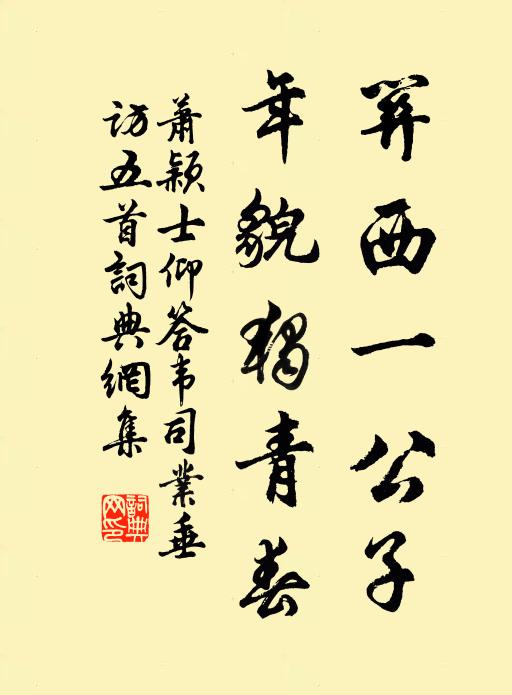 关西一公子
年貌独青春
萧颖士仰答韦司業垂
訪五首詞典網集
詞典
网印